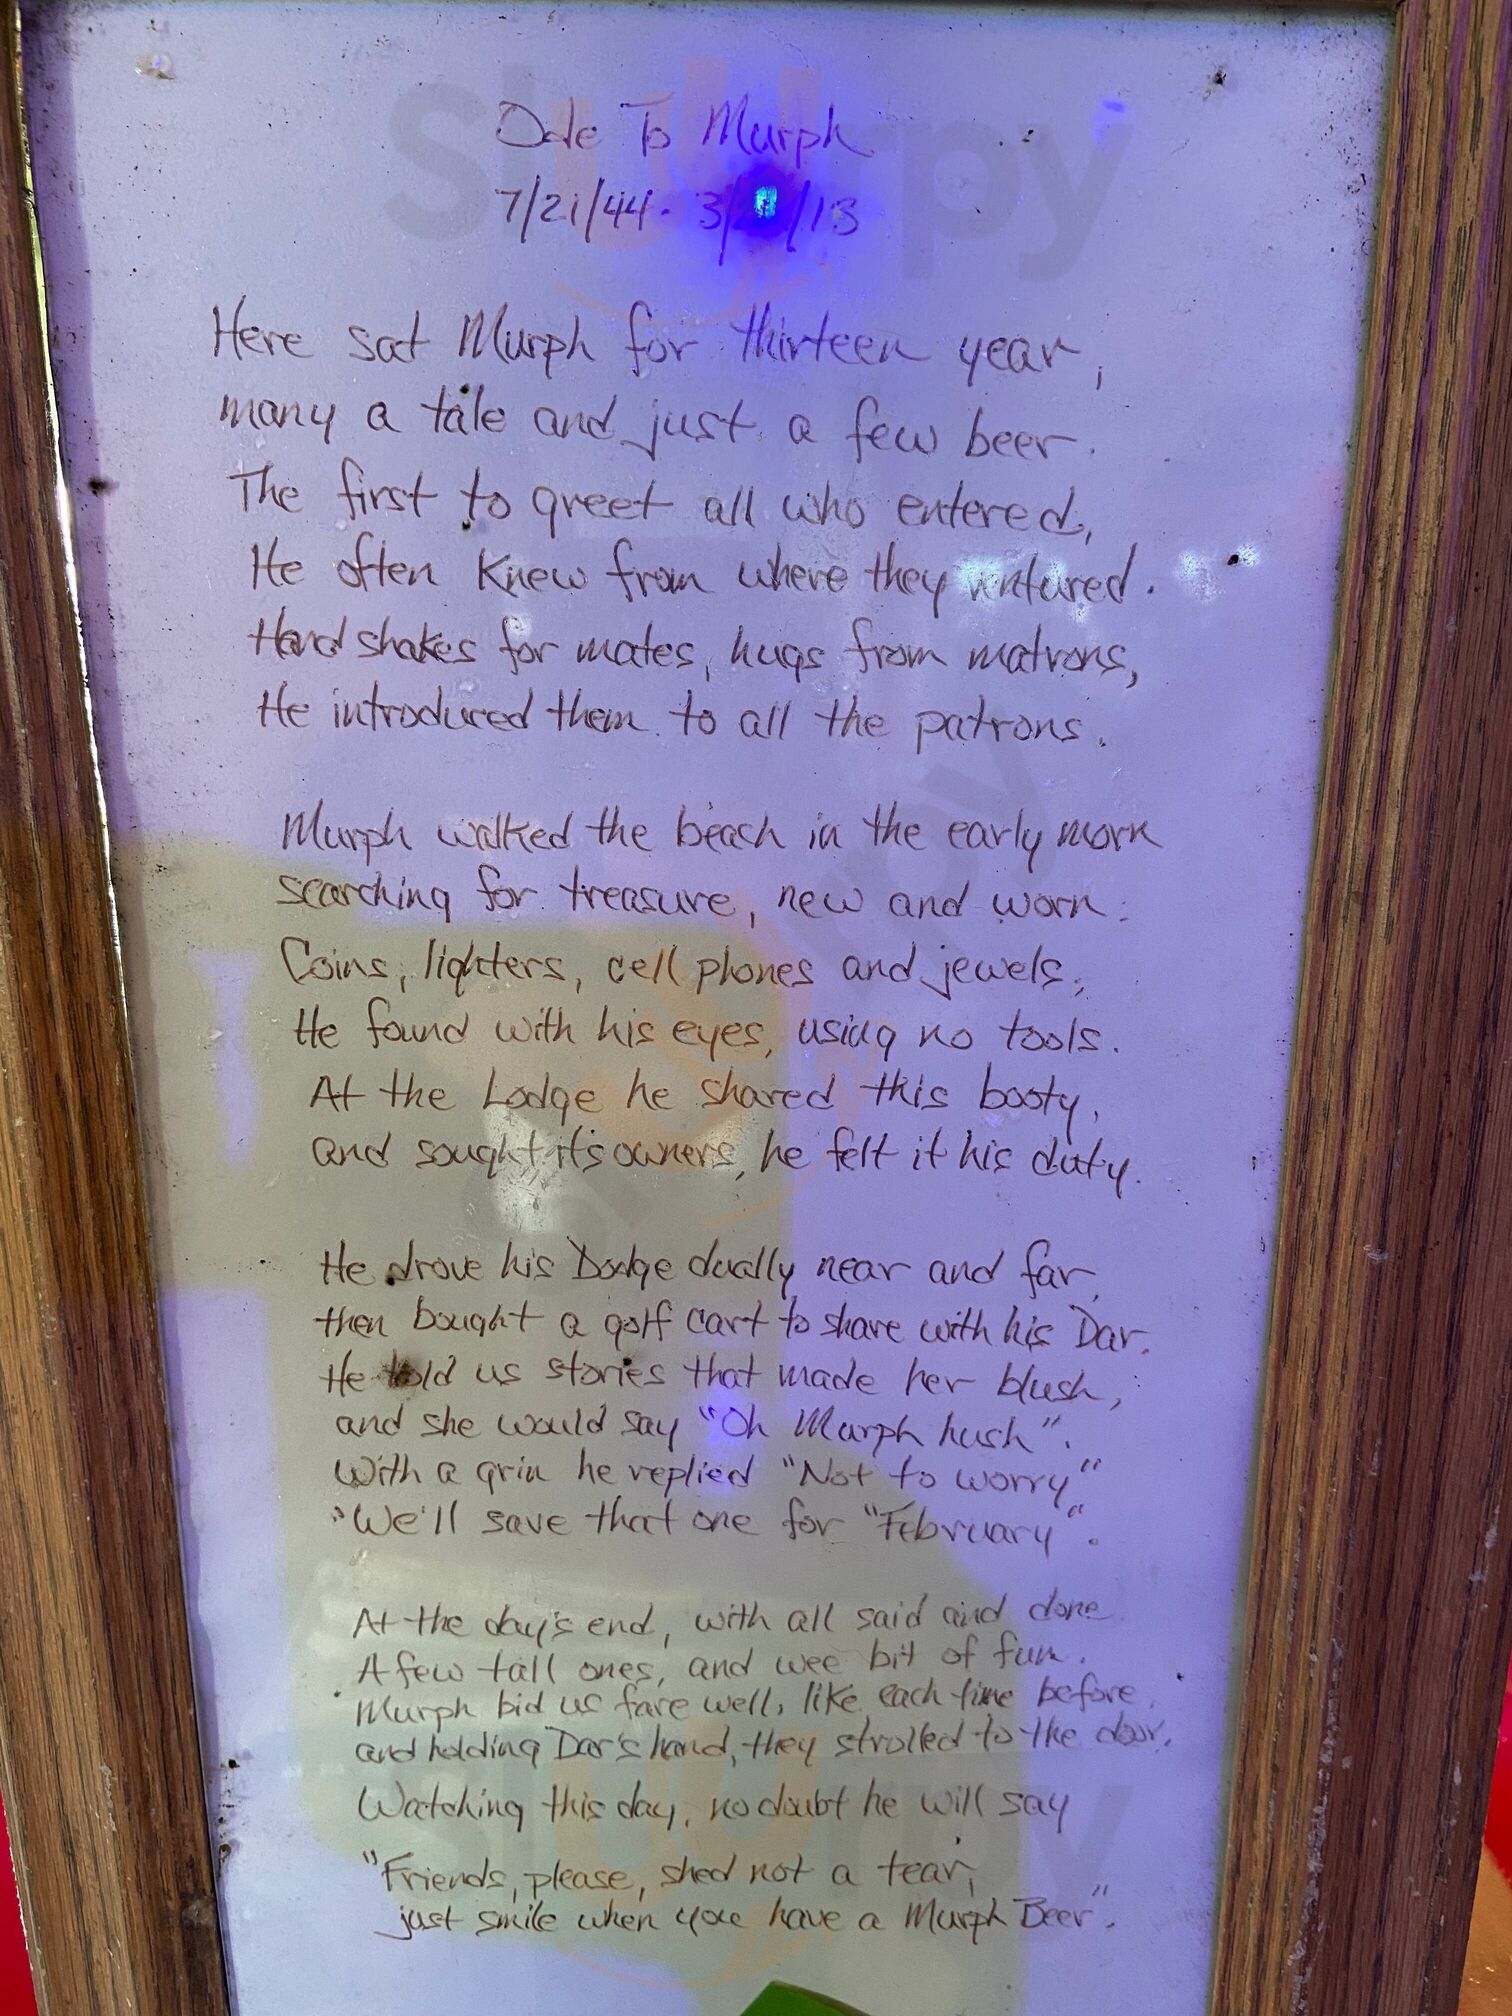 Ode To Murph
7/21/44 - 3/ /13
Here sat Murph for thirteen year,
many a tale and just a few beer.
The first to greet all who entered,
He often knew from where they ventured.
Handshakes for mates, hugs from matrons,
He introduced them to all the patrons.
Murph walked the beach in the early morn
searching for treasure, new and worn.
Coins, lighters, cell phones and jewels,
He found with his eyes, using no tools.
At the Lodge he shared this booty,
and sought it's owners, he felt it his duty.
He drove his Dodge dually near and far,
then bought a golf cart to share with his Dar.
He told us stories that made her blush,
and she would say "Oh Murph hush".
With a grin he replied "Not to worry"
"We'll save that one for "February".
At the day's end, with all said and done
A few tall ones, and wee bit of fun.
Murph bid us fare well, like each time before,
and holding Dar's hand, they strolled to the door.
Watching this day, no doubt he will say
"Friends, please, shed not a tear,
just smile when you have a Murph Beer".
slurpy
slurpy
slurpy